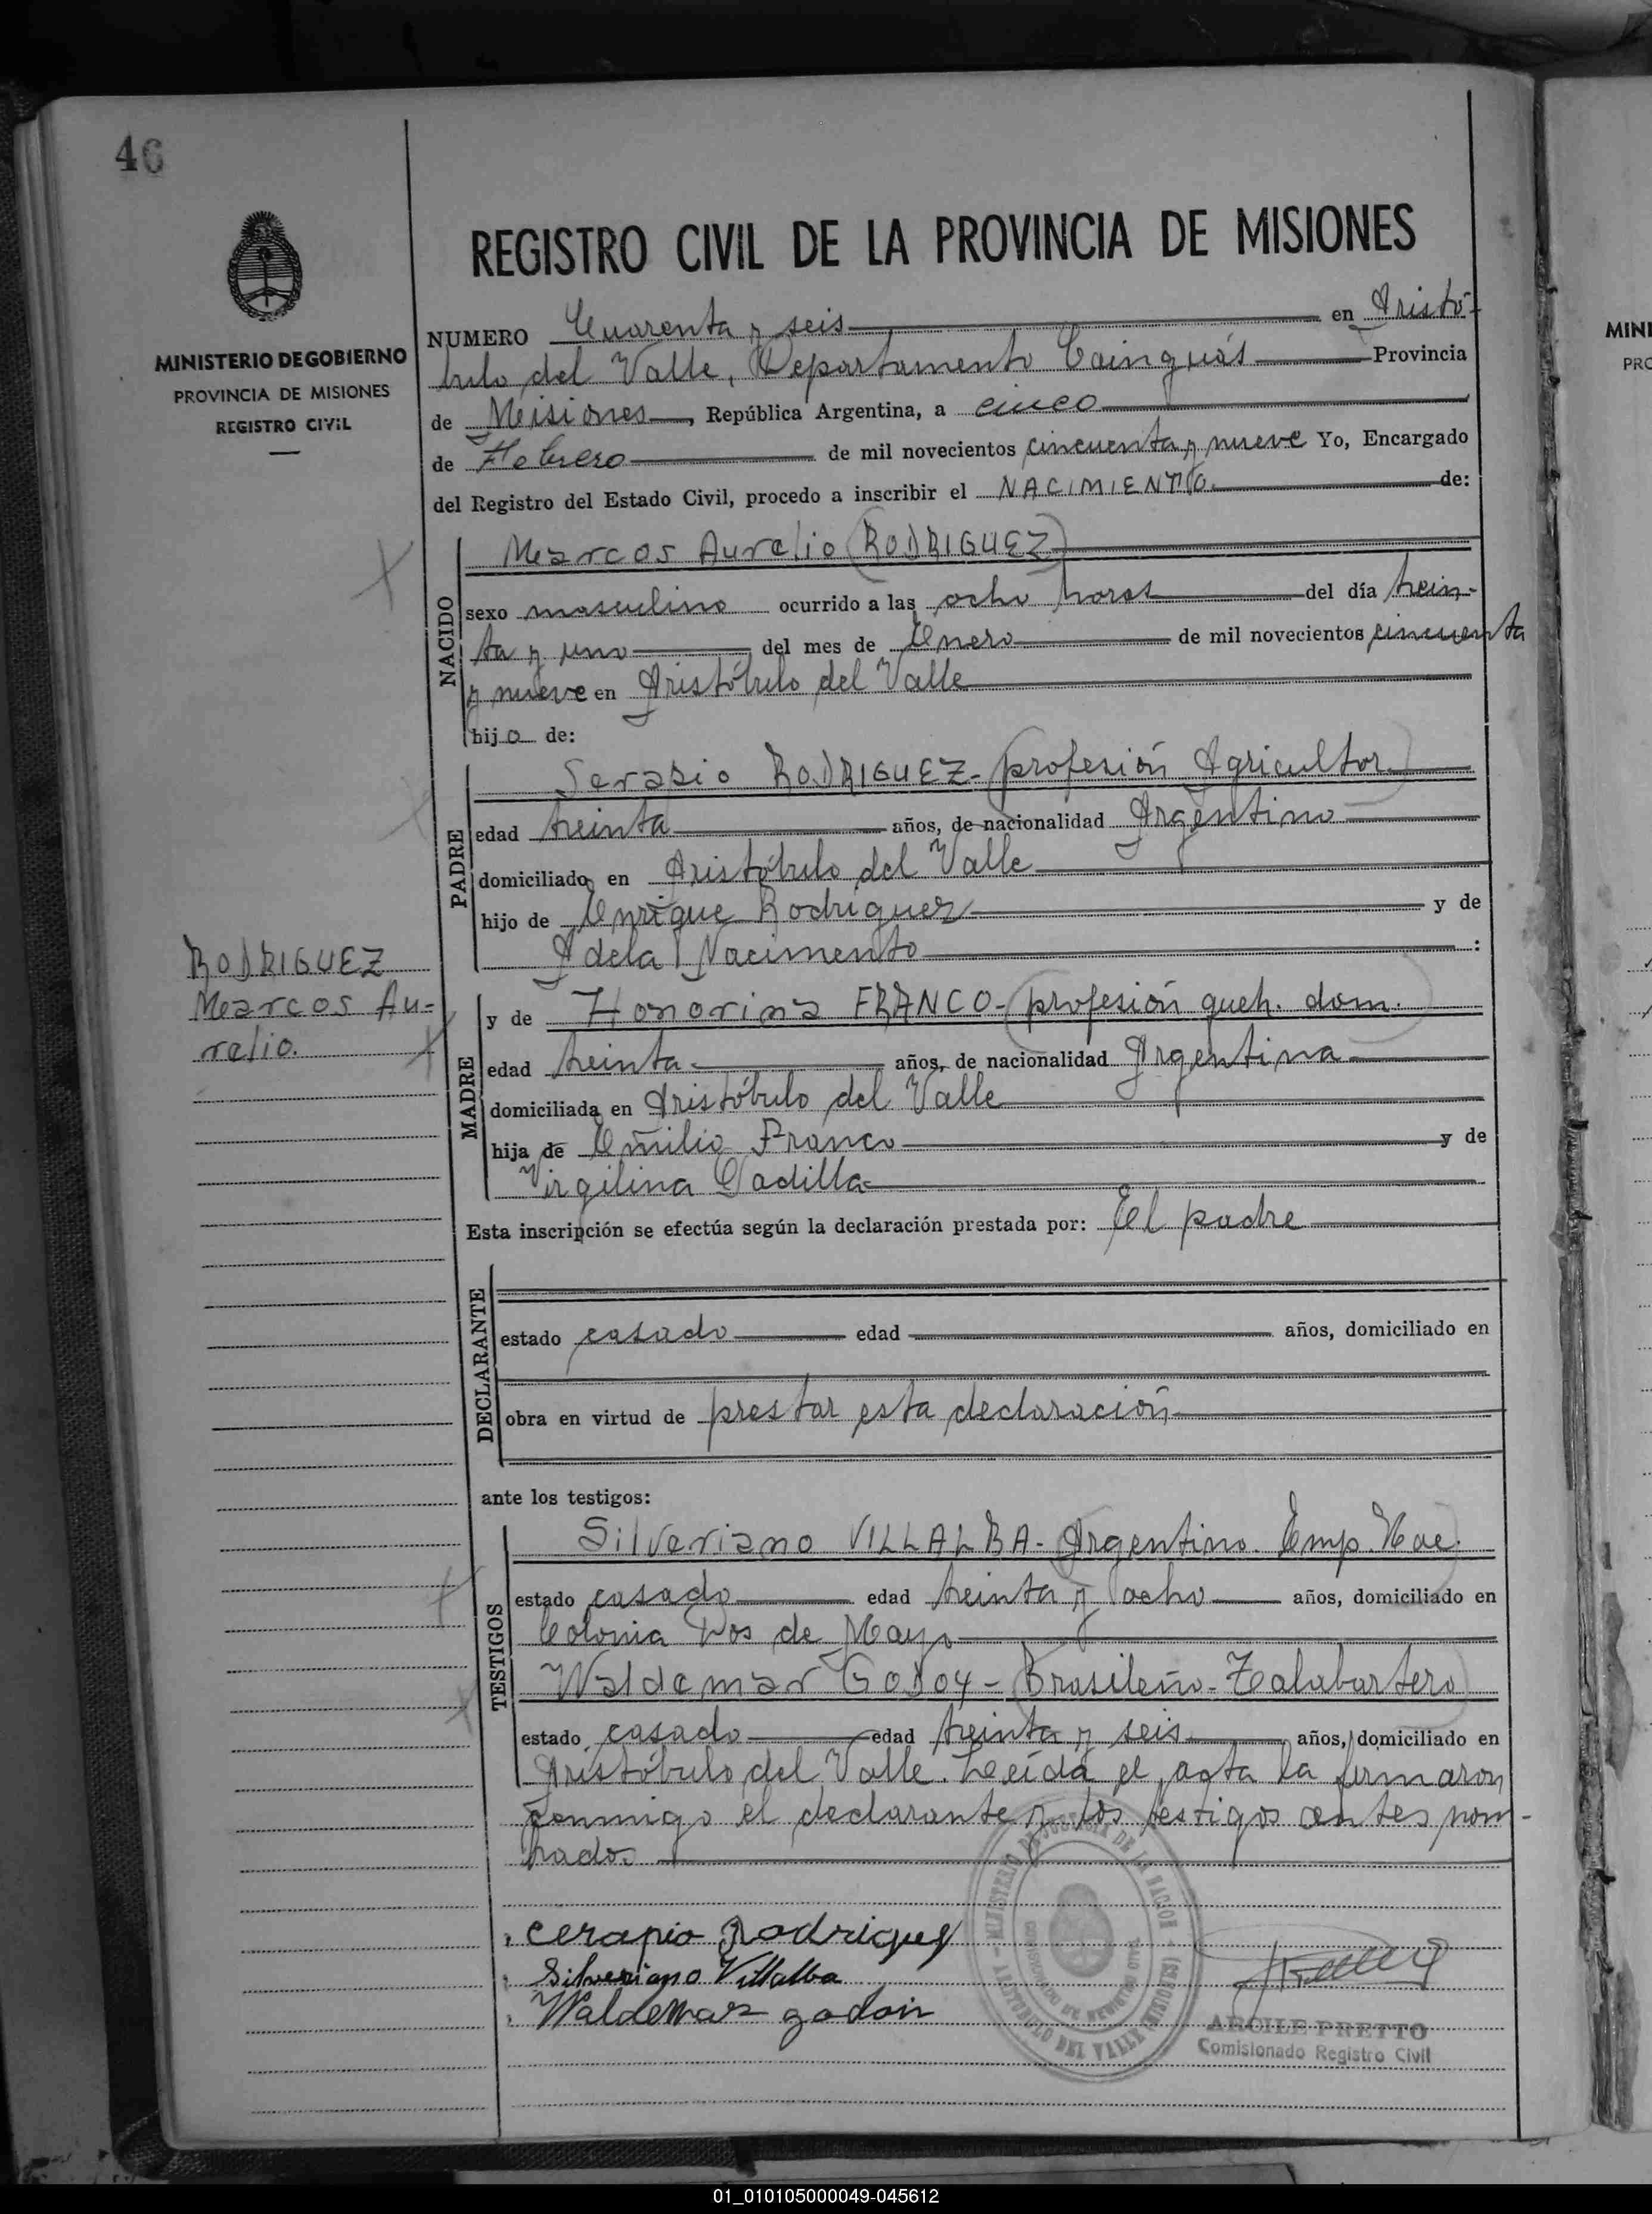 46
REGISTRO CIVIL DE LA PROVINCIA DE MISIONES
MINISTERIO DE GOBIERNO
PROVINCIA DE MISIONES
REGISTRO CIVIL
NUMERO Cuarenta y seis en Aristó-
bulo del Valle, Departamento Cainguás Provincia
de Misiones, República Argentina, a cinco
de Febrero de mil novecientos cincuenta y nueve Yo, Encargado
del Registro del Estado Civil, procedo a inscribir el NACIMIENTO de:
NACIDO
Marcos Aurelio (RODRIGUEZ)
sexo masculino ocurrido a las ocho horas del día trein-
ta y uno del mes de Enero de mil novecientos cincuenta
y nueve en Aristóbulo del Valle
hijo de:
PADRE
Serapio RODRIGUEZ - (profesión Agricultor)
edad treinta años, de nacionalidad Argentino
domiciliado en Aristóbulo del Valle
hijo de Enrique Rodriguez y de
Adela Nacimento :
RODRIGUEZ
Marcos Au-
relio.
MADRE
y de Honorina FRANCO - (profesión queh. dom.)
edad treinta años, de nacionalidad Argentina
domiciliada en Aristóbulo del Valle
hija de Emilio Franco y de
Virgilina Padilla
Esta inscripción se efectúa según la declaración prestada por: El padre
DECLARANTE
estado casado edad años, domiciliado en
obra en virtud de prestar esta declaración
ante los testigos:
TESTIGOS
Silveriano VILLALBA - (Argentino. Emp. Nac.)
estado casado edad treinta y ocho años, domiciliado en
Colonia Dos de Mayo
Waldemar GODOY - (Brasileño - Talabartero)
estado casado edad treinta y seis años, domiciliado en
Aristóbulo del Valle. Leída el acta la firmaron
conmigo el declarante y los testigos antes nom-
brados.
cerapio Rodriguez
Silveriano Villalba
Waldemar godoi
MINISTERIO DE JUSTICIA DE LA NACION
ARISTOBULO DEL VALLE (MISIONES)
ARCILE PRETTO
Comisionado Registro Civil
MINI
PRO
01_010105000049-045612